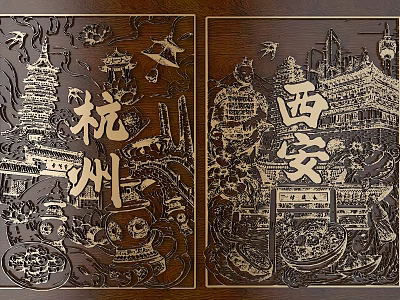 杭州
西安